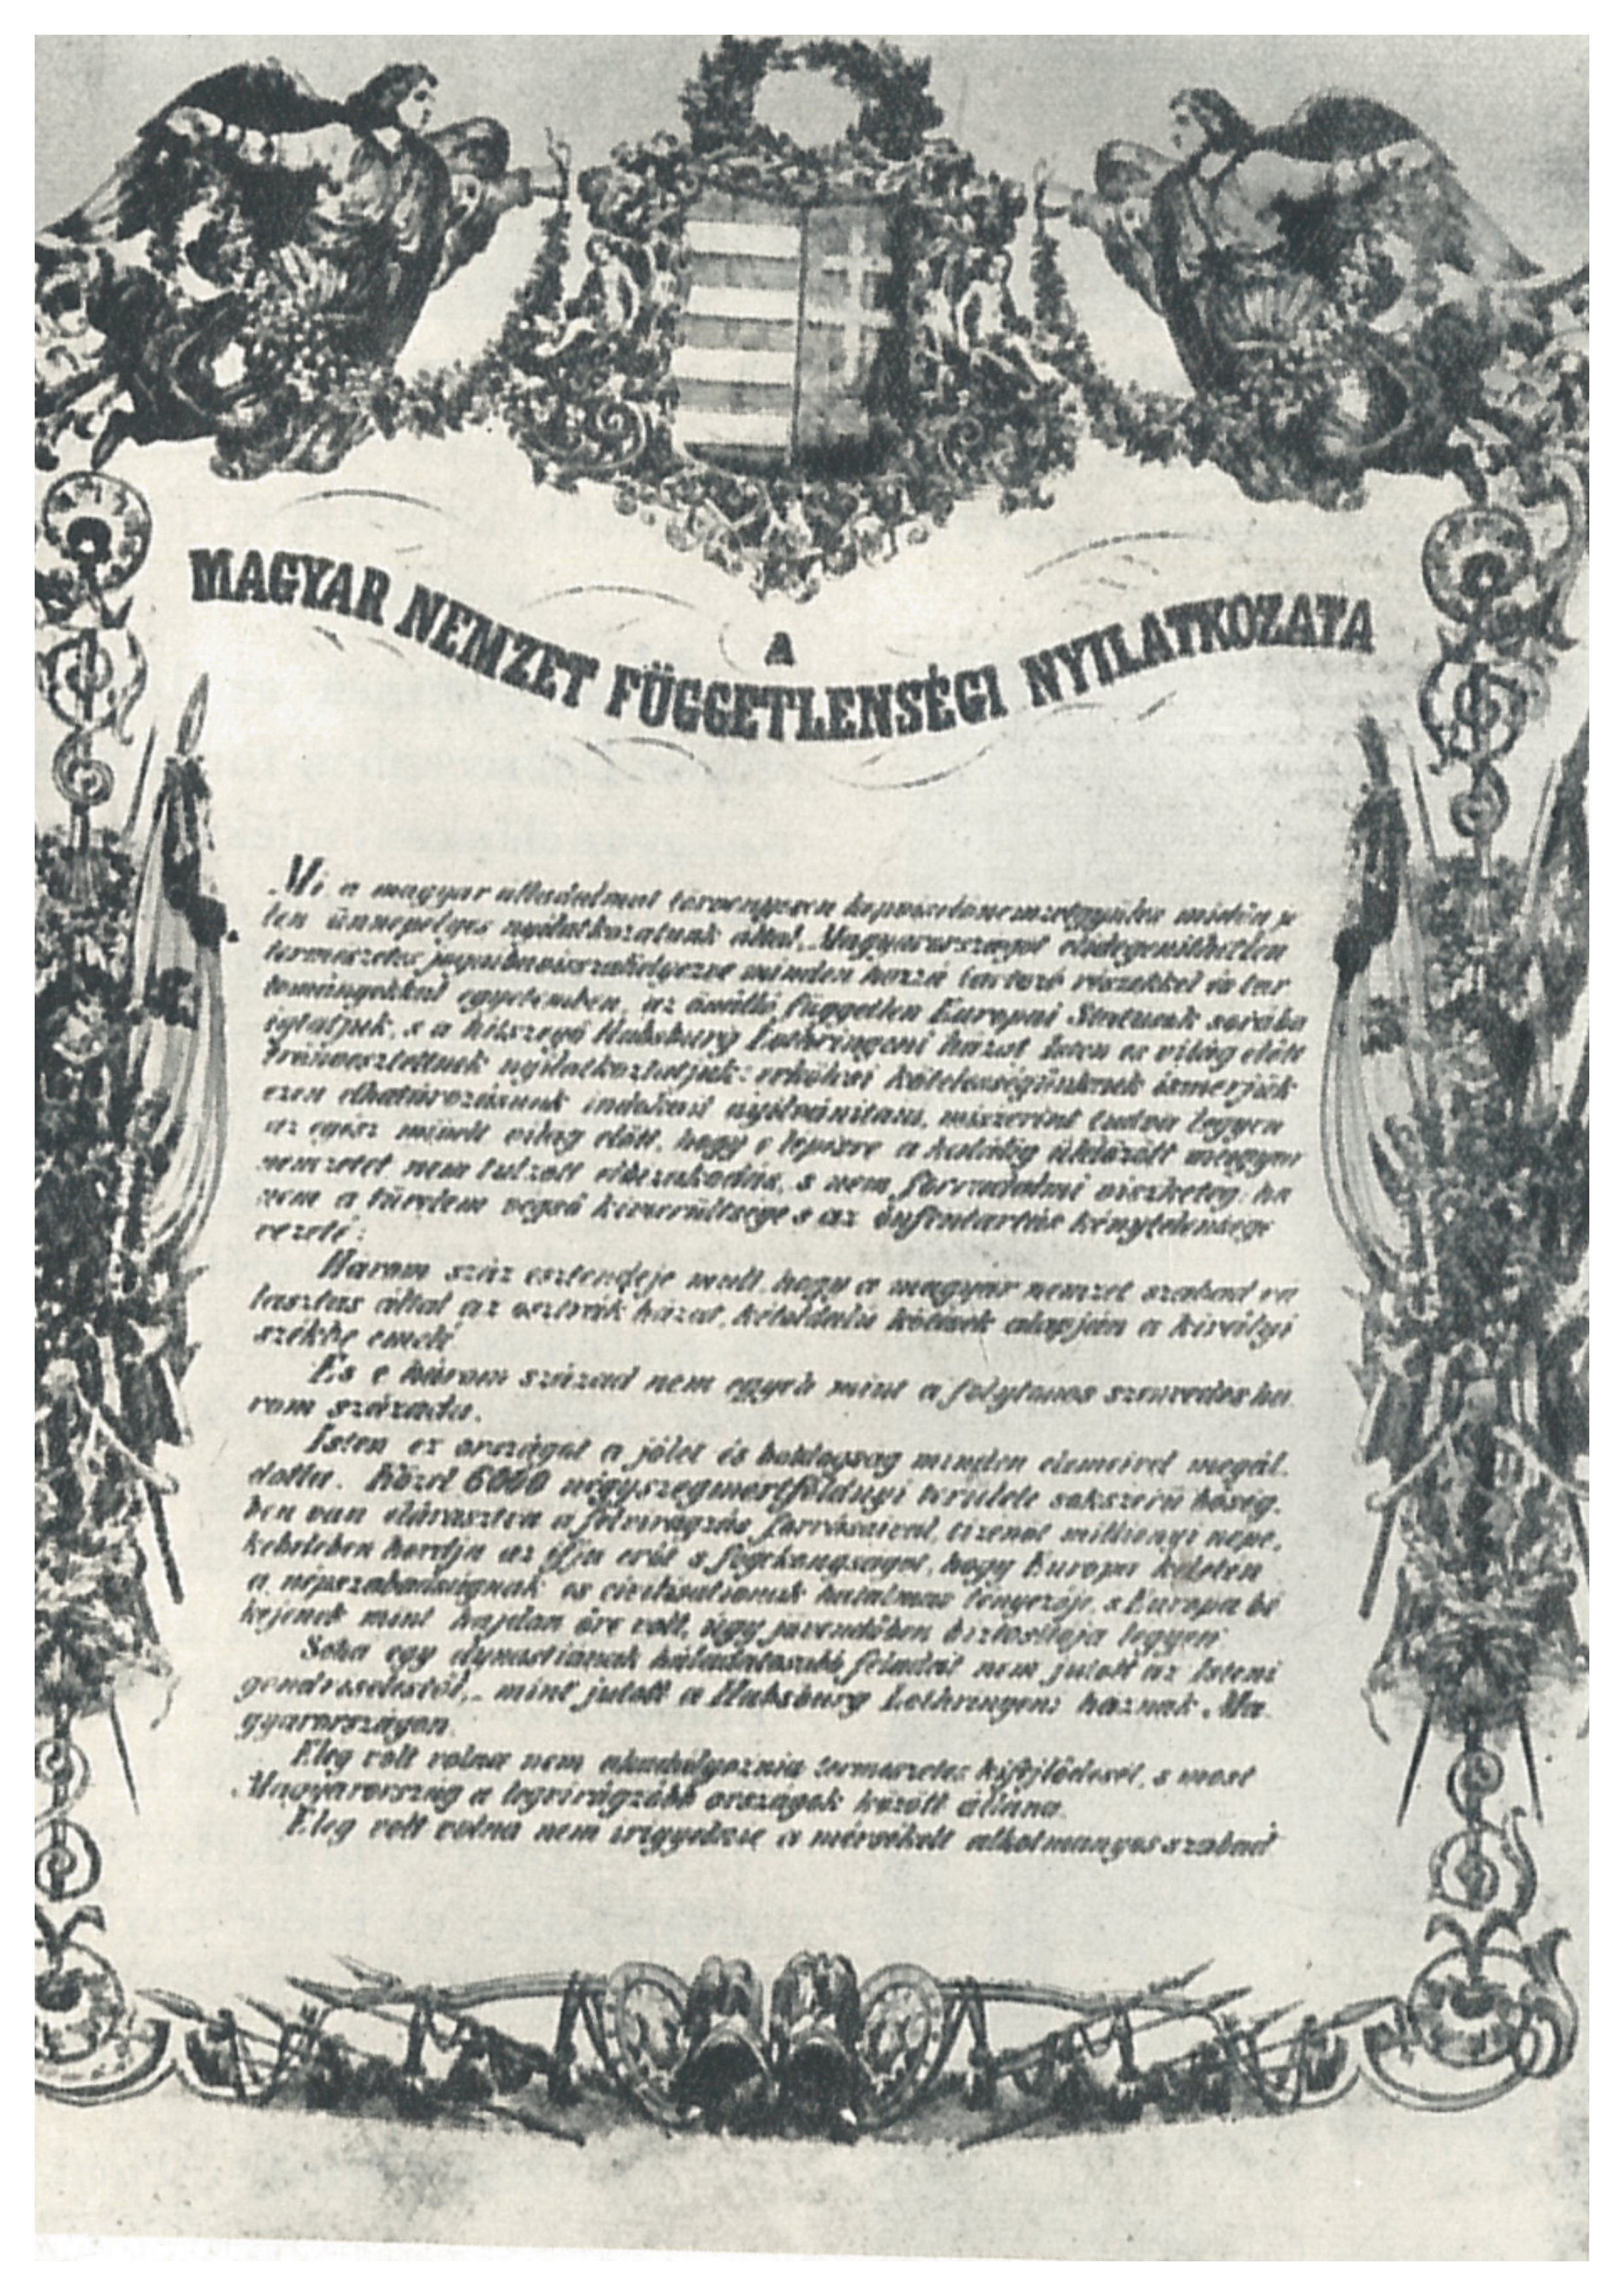 A
MAGYAR NEMZET FÜGGETLENSÉGI NYILATKOZATA
Mi a magyar álladalmat törvényesen képviselő nemzetgyűlés midőn je
len ünnepélyes nyilatkozatunk által, Magyarországot elidegenithetlen
természetes jogaiba visszahelyezve minden hozzá tartozó részekkel és tar
tományokkal egyetemben, az önálló független Europai Statusok sorába
igtatjuk, s a hitszegő Habsburg Lothringeni házat Isten és világ előtt
trónvesztettnek nyilatkoztatjuk: erkölcsi kötelességünknek ismerjük
ezen elhatározásunk indokait nyilvánitani, miszerint tudva legyen
az egész mivelt világ előtt, hogy e lépésre a halálig üldözött magyar
nemzetet nem tulzott elbizakodás, s nem forradalmi viszketeg, ha
nem a türelem végső kimerültsége s az önfentartás kénytelensége
vezeté:
Három száz esztendeje mult, hogy a magyar nemzet szabad vá
lasztás által az osztrák házat, kétoldalú kötések alapján a királyi
székbe emelé
És e három század nem egyéb mint a folytonos szenvedés há
rom százada.
Isten ez országot a jólét és boldogság minden elemeivel megál.
dotta. Közel 6000 négyszegmértföldnyi területe sokszerü bőség.
ben van elárasztva a felvirágzás forrásaival, tizenöt millionyi népe,
kebelében hordja az ifju erőt s fogékonyságot, hogy Europa keletén
a népszabadságnak és civilisationak hatalmas tényezője, s Europa bé
kéjének mint hajdan őre volt, úgy jövendőben biztositója legyen.
Soha egy dynastiának háladatosabb feladat nem jutott az Isteni
gondviseléstől, mint jutott a Habsburg Lothringeni háznak Ma
gyarországon.
Elég volt volna nem akadályoznia természetes kifejlődését, s most
Magyarország a legvirágzóbb országok között állana.
Elég volt volna nem irigyelnie a mérsékelt alkotmányos szabad